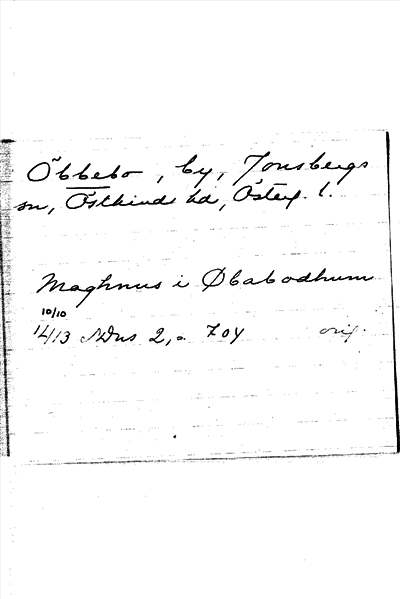 Öbbebo, by, Jonsbergs
sn, Östkinds hd, Österg. l.
Maghnus i Øbabodhum
10/10
1413 SDns 2, s. 704 orig.